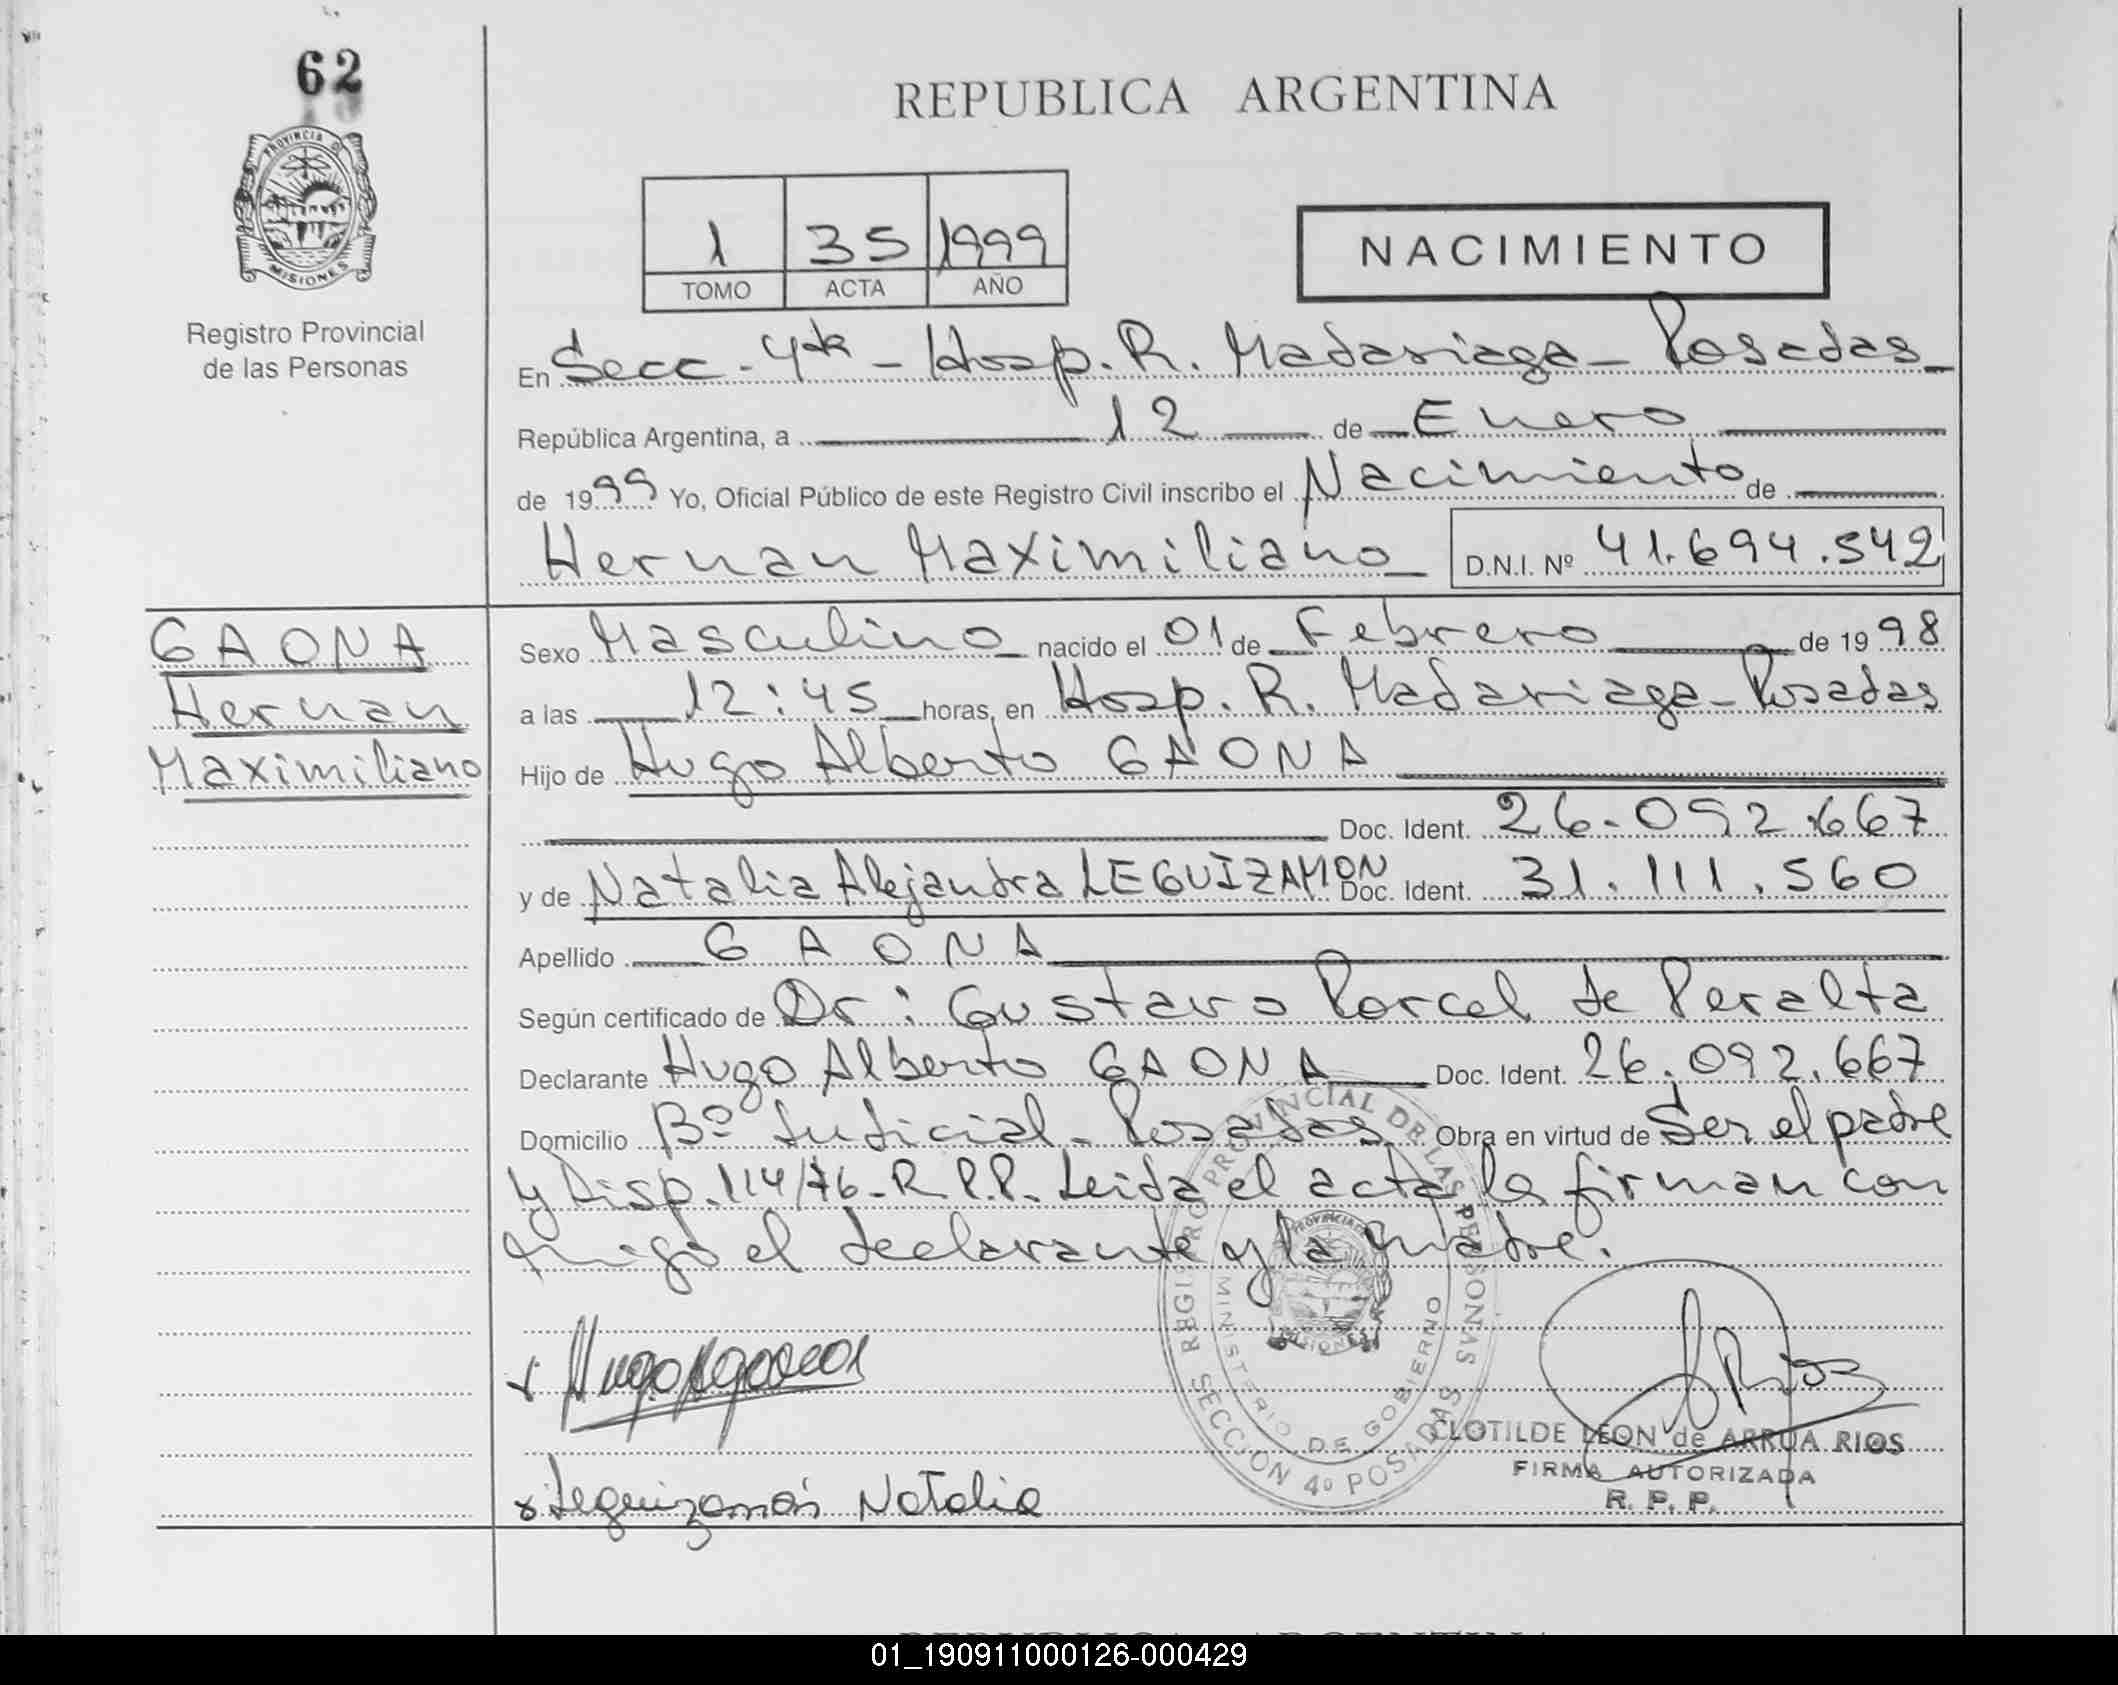 62
REPUBLICA ARGENTINA
PROVINCIA D
MISIONES
Registro Provincial
de las Personas
1 35 1999
TOMO ACTA AÑO
NACIMIENTO
En Secc - 4ta - Hosp. R. Madariaga - Posadas -
República Argentina, a 12 de Enero
de 1999 Yo, Oficial Público de este Registro Civil inscribo el Nacimiento de
Hernan Maximiliano D.N.I. Nº 41.694.542
GAONA
Hernan
Maximiliano
Sexo Masculino nacido el 01 de Febrero de 1998
a las 12:45 horas, en Hosp. R. Madariaga - Posadas
Hijo de Hugo Alberto GAONA
Doc. Ident. 26.092.667
y de Natalia Alejandra LEGUIZAMON Doc. Ident. 31.111.560
Apellido GAONA
Según certificado de Dr: Gustavo Porcel de Peralta
Declarante Hugo Alberto GAONA Doc. Ident. 26.092.667
Domicilio Bº Judicial - Posadas Obra en virtud de Ser el padre
y Disp. 114/76 - R.P.P. Leida el acta la firman con
migo el declarante y la madre.
REGISTRO PROVINCIAL DE LAS PERSONAS
MINISTERIO DE GOBIERNO
SECCION 4º POSADAS
PROVINCIA
MISIONES
x Hugo A gaona
Rios
CLOTILDE LEON de ARRUA RIOS
FIRMA AUTORIZADA
R. P. P.
x Leguizamón Natalia
REPUBLICA ARGENTINA
01_190911000126-000429